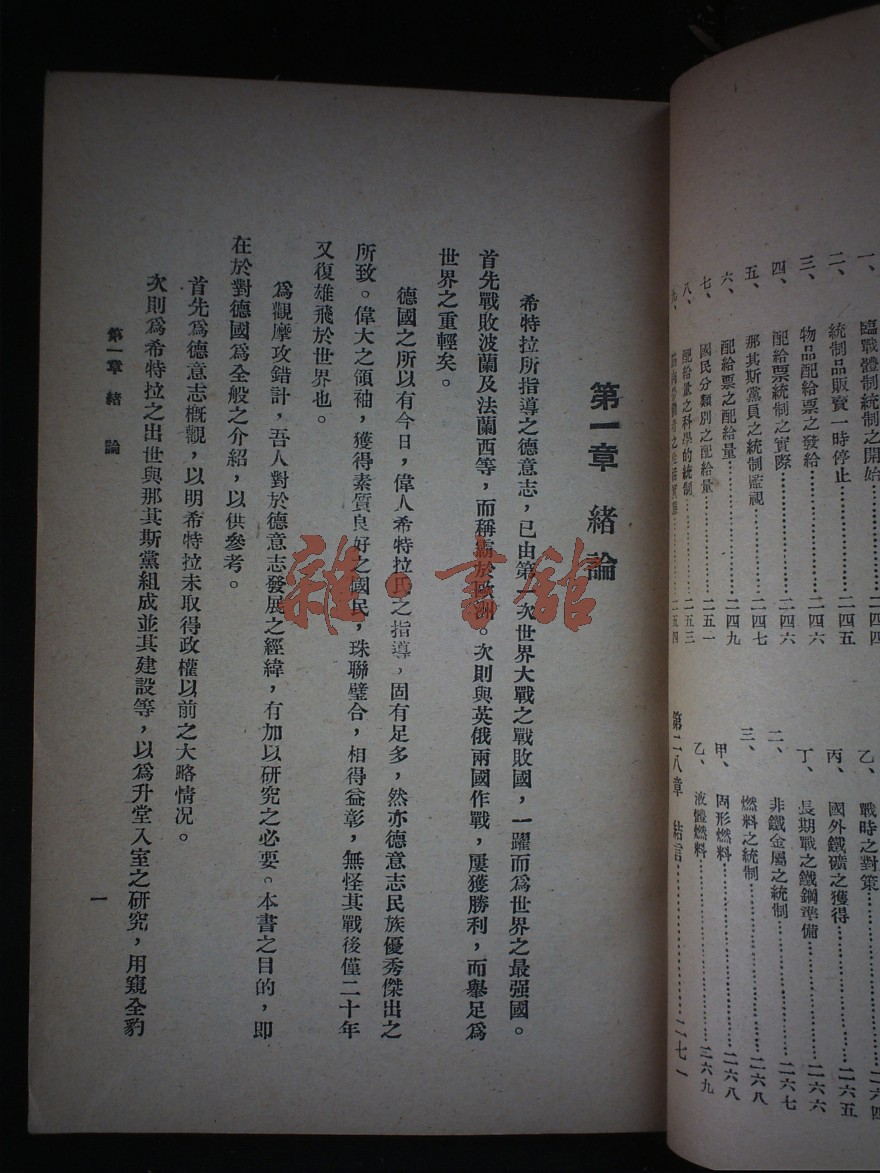 一、臨戰體制統制之開始………二四四
二、統制品販賣一時停止………二四五
三、物品配給票之發給………二四六
四、配給票統制之實際………二四六
五、那其斯黨員之統制監視………二四七
六、配給票之配給量………二四九
七、國民分類別之配給量………二五一
八、配給量之科學的統制………二五三
九、
二五四
乙、戰時之對策………二六四
丙、國外鐵礦之獲得………二六五
丁、長期戰之鐵鋼準備………二六六
二、非鐵金屬之統制………二六七
三、燃料之統制………二六八
甲、固形燃料………二六八
乙、液體燃料………二六九
第二八章 結言………二七一
第一章 緒論
希特拉所指導之德意志，已由第一次世界大戰之戰敗國，一躍而爲世界之最强國。
首先戰敗波蘭及法蘭西等，而稱霸於歐洲。次則與英俄兩國作戰，屢獲勝利，而舉足爲
世界之重輕矣。
德國之所以有今日，偉人希特拉氏之指導，固有足多，然亦德意志民族優秀傑出之
所致。偉大之領袖，獲得素質良好之國民，珠聯璧合，相得益彰，無怪其戰後僅二十年
又復雄飛於世界也。
爲觀摩攻錯計，吾人對於德意志發展之經緯，有加以研究之必要。本書之目的，即
在於對德國爲全般之介紹，以供參考。
首先爲德意志槪觀，以明希特拉未取得政權以前之大略情况。
次則爲希特拉之出世與那其斯黨組成並其建設等，以爲升堂入室之研究，用窺全豹
第一章 緒論
一
雜·書館